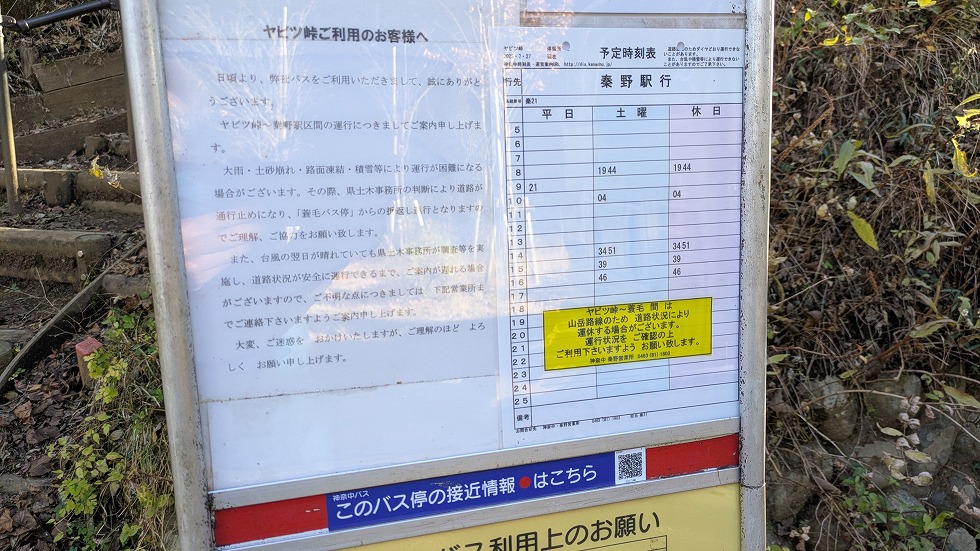 ヤビツ峠ご利用のお客様へ
日頃より、弊社バスをご利用いただきまして、誠にありがと
うございます。
ヤビツ峠～秦野駅区間の運行につきましてご案内申し上げま
す。
大雨・土砂崩れ・路面凍結・積雪等により運行が困難になる
場合がございます。その際、県土木事務所の判断により道路が
通行止めになり、「蓑毛バス停」からの折返し運行となりますの
でご理解、ご協力をお願い致します。
また、台風の翌日が晴れていても県土木事務所が調査等を実
施し、道路状況が安全に運行できるまで、ご案内が遅れる場合
がございますので、ご不明な点につきましては 下記営業所ま
でご連絡下さいますようご案内申し上げます。
大変、ご迷惑を おかけいたしますが、ご理解のほど よろ
しく お願い申し上げます。
ヤビツ峠
予定時刻表
行先 秦野駅行
秦21
平日 土曜 休日
5
6
7
8 19 44 19 44
9 21
10 04 04
11
12
13
14 34 51 34 51
15 39 39
16 46 46
17
18
19
20
21
22
23
24
25
備考
ヤビツ峠～蓑毛 間 は
山岳路線のため 道路状況により
運休する場合がございます。
運行状況を ご確認の上
ご利用下さいますよう お願い致します。
神奈中 秦野営業所
神奈中バス
このバス停の接近情報●はこちら
バス利用上のお願い